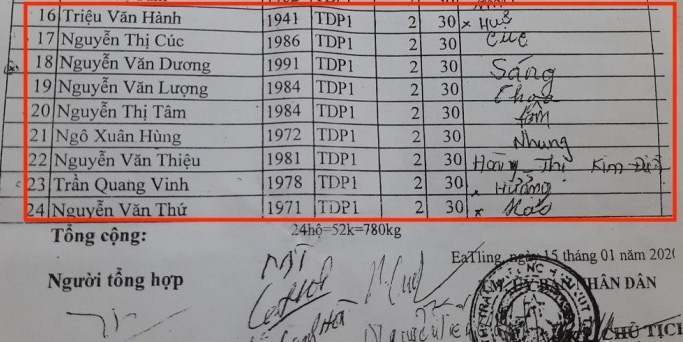 16 Triệu Văn Hành 1941 TDP1 2 30 x Huệ
17 Nguyễn Thị Cúc 1986 TDP1 2 30 Cúc
18 Nguyễn Văn Dương 1991 TDP1 2 30 Sáng
19 Nguyễn Văn Lượng 1984 TDP1 2 30
20 Nguyễn Thị Tâm 1984 TDP1 2 30 Tâm
21 Ngô Xuân Hùng 1972 TDP1 2 30 Nhung
22 Nguyễn Văn Thiệu 1981 TDP1 2 30 Hoàng Thị Kim
23 Trần Quang Vinh 1978 TDP1 2 30 x Hường
24 Nguyễn Văn Thứ 1971 TDP1 2 30 x
Tổng cộng: 24hộ=52k=780kg
EaTling, ngày 15 tháng 01 năm 2020
Người tổng hợp
TM. ỦY BAN NHÂN DÂN
CHỦ TỊCH